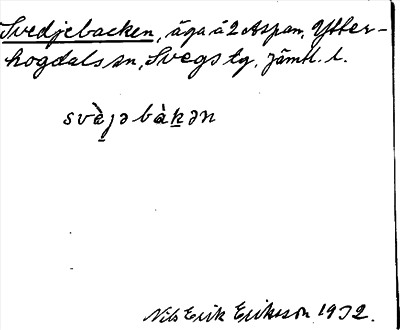 Svedjebacken, äga å 2 Aspan, Ytter-
hogdals sn, Svegs tg, Jämtl. l.
svὲ̱ɟəbàḵən
Nils Erik Eriksson 1932.